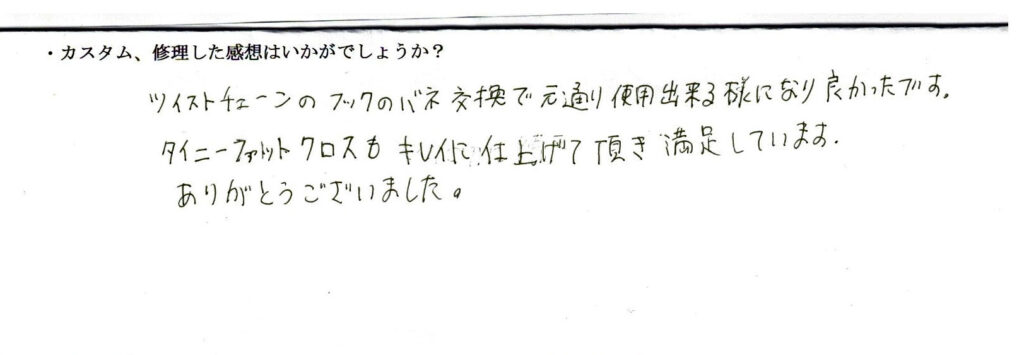 ・カスタム、修理した感想はいかがでしょうか？
ツイストチェーンのフックのバネ交換で元通り使用出来る様になり良かったです。
タイニーファットクロスもキレイに仕上げて頂き満足しています.
ありがとうございました。